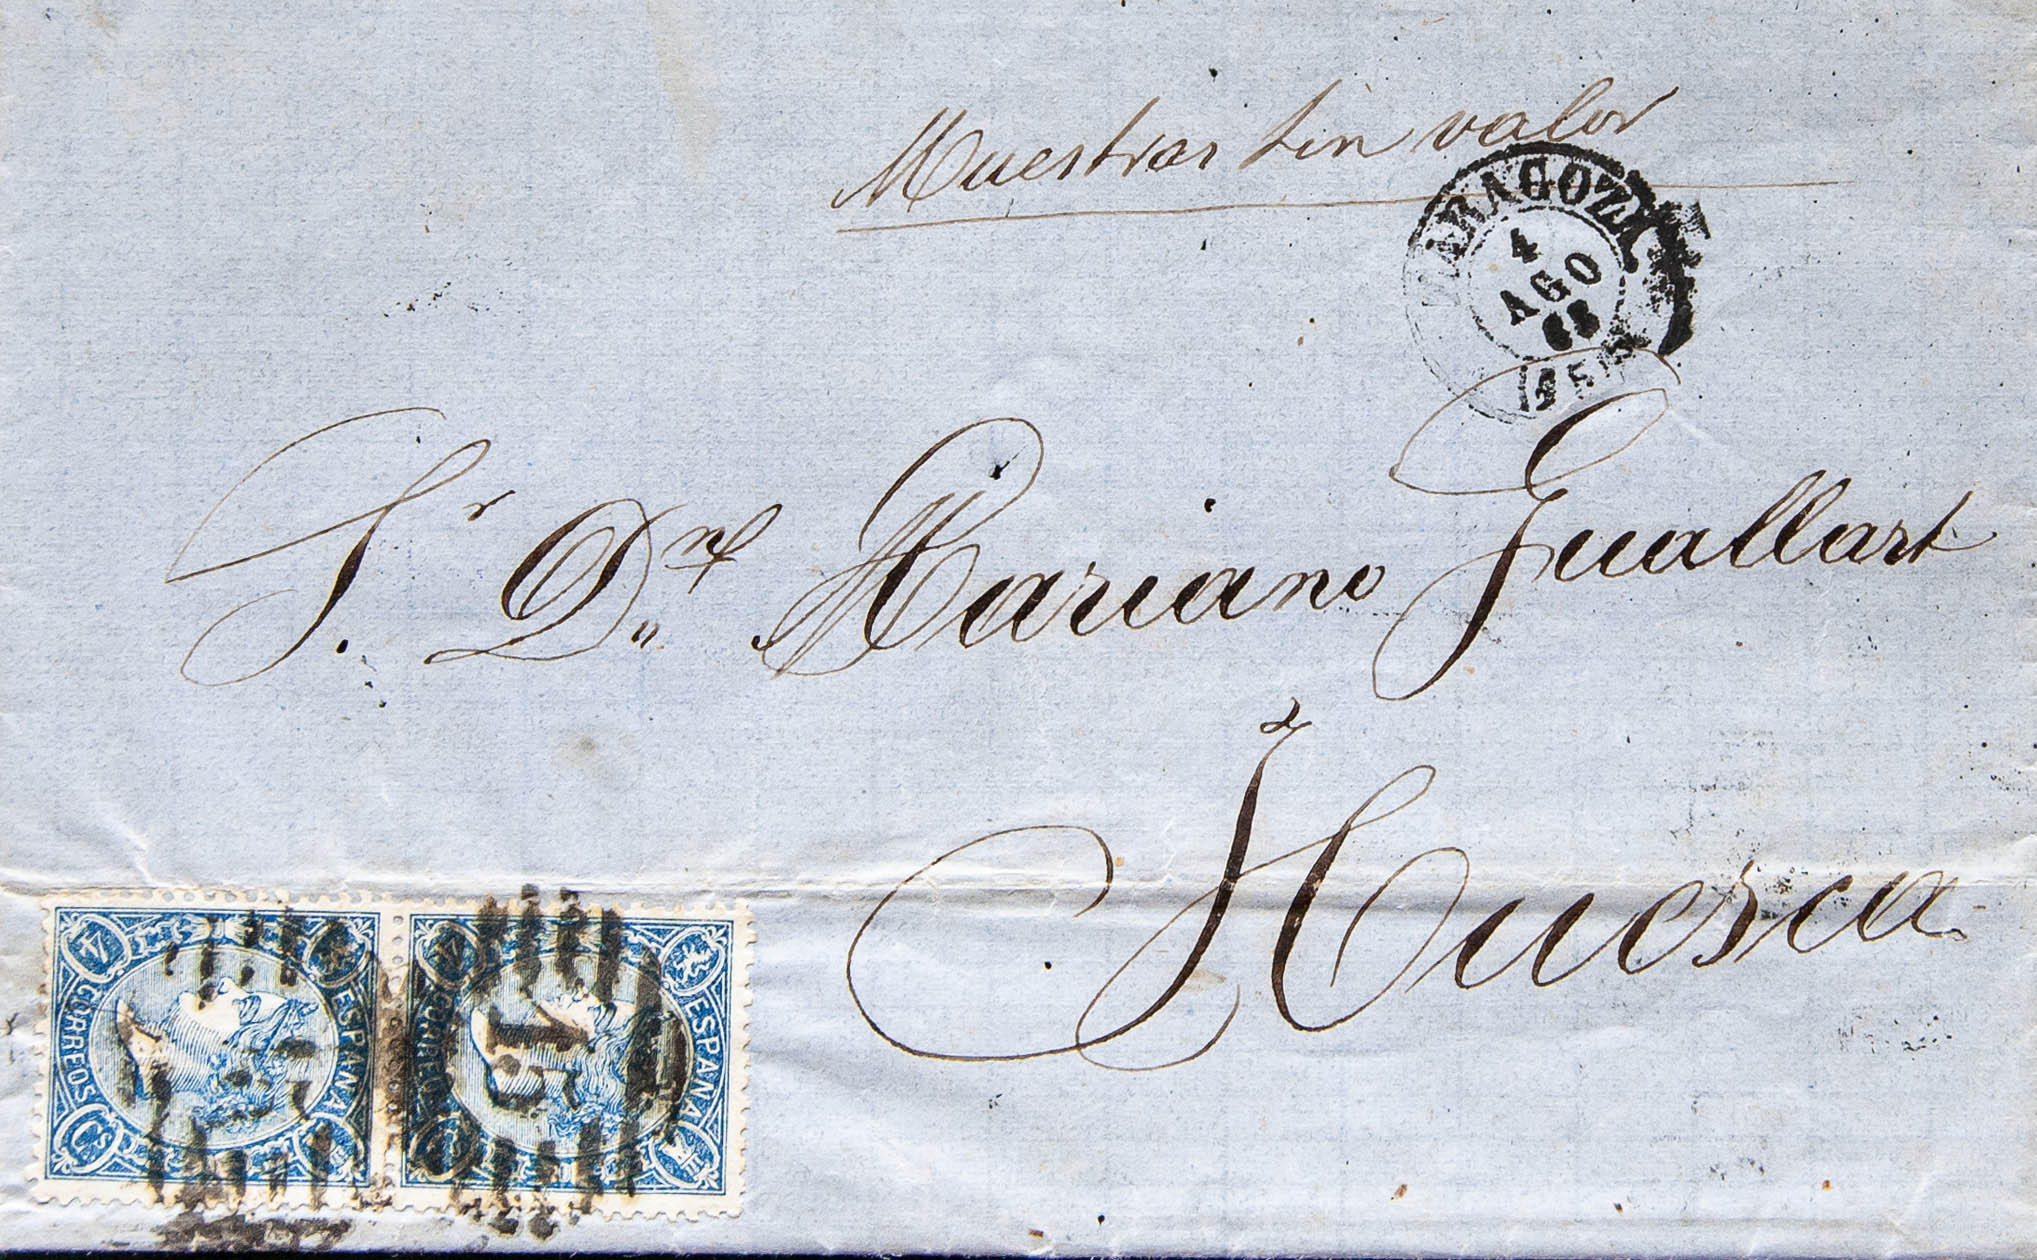 Muestras sin valor
ZARAGOZA
4
AGO
65
Sr. Dn. Mariano Guallart
Huesca
4 Cs.
CORREOS
ESPAÑA
4 Cs.
CORREOS
ESPAÑA
15